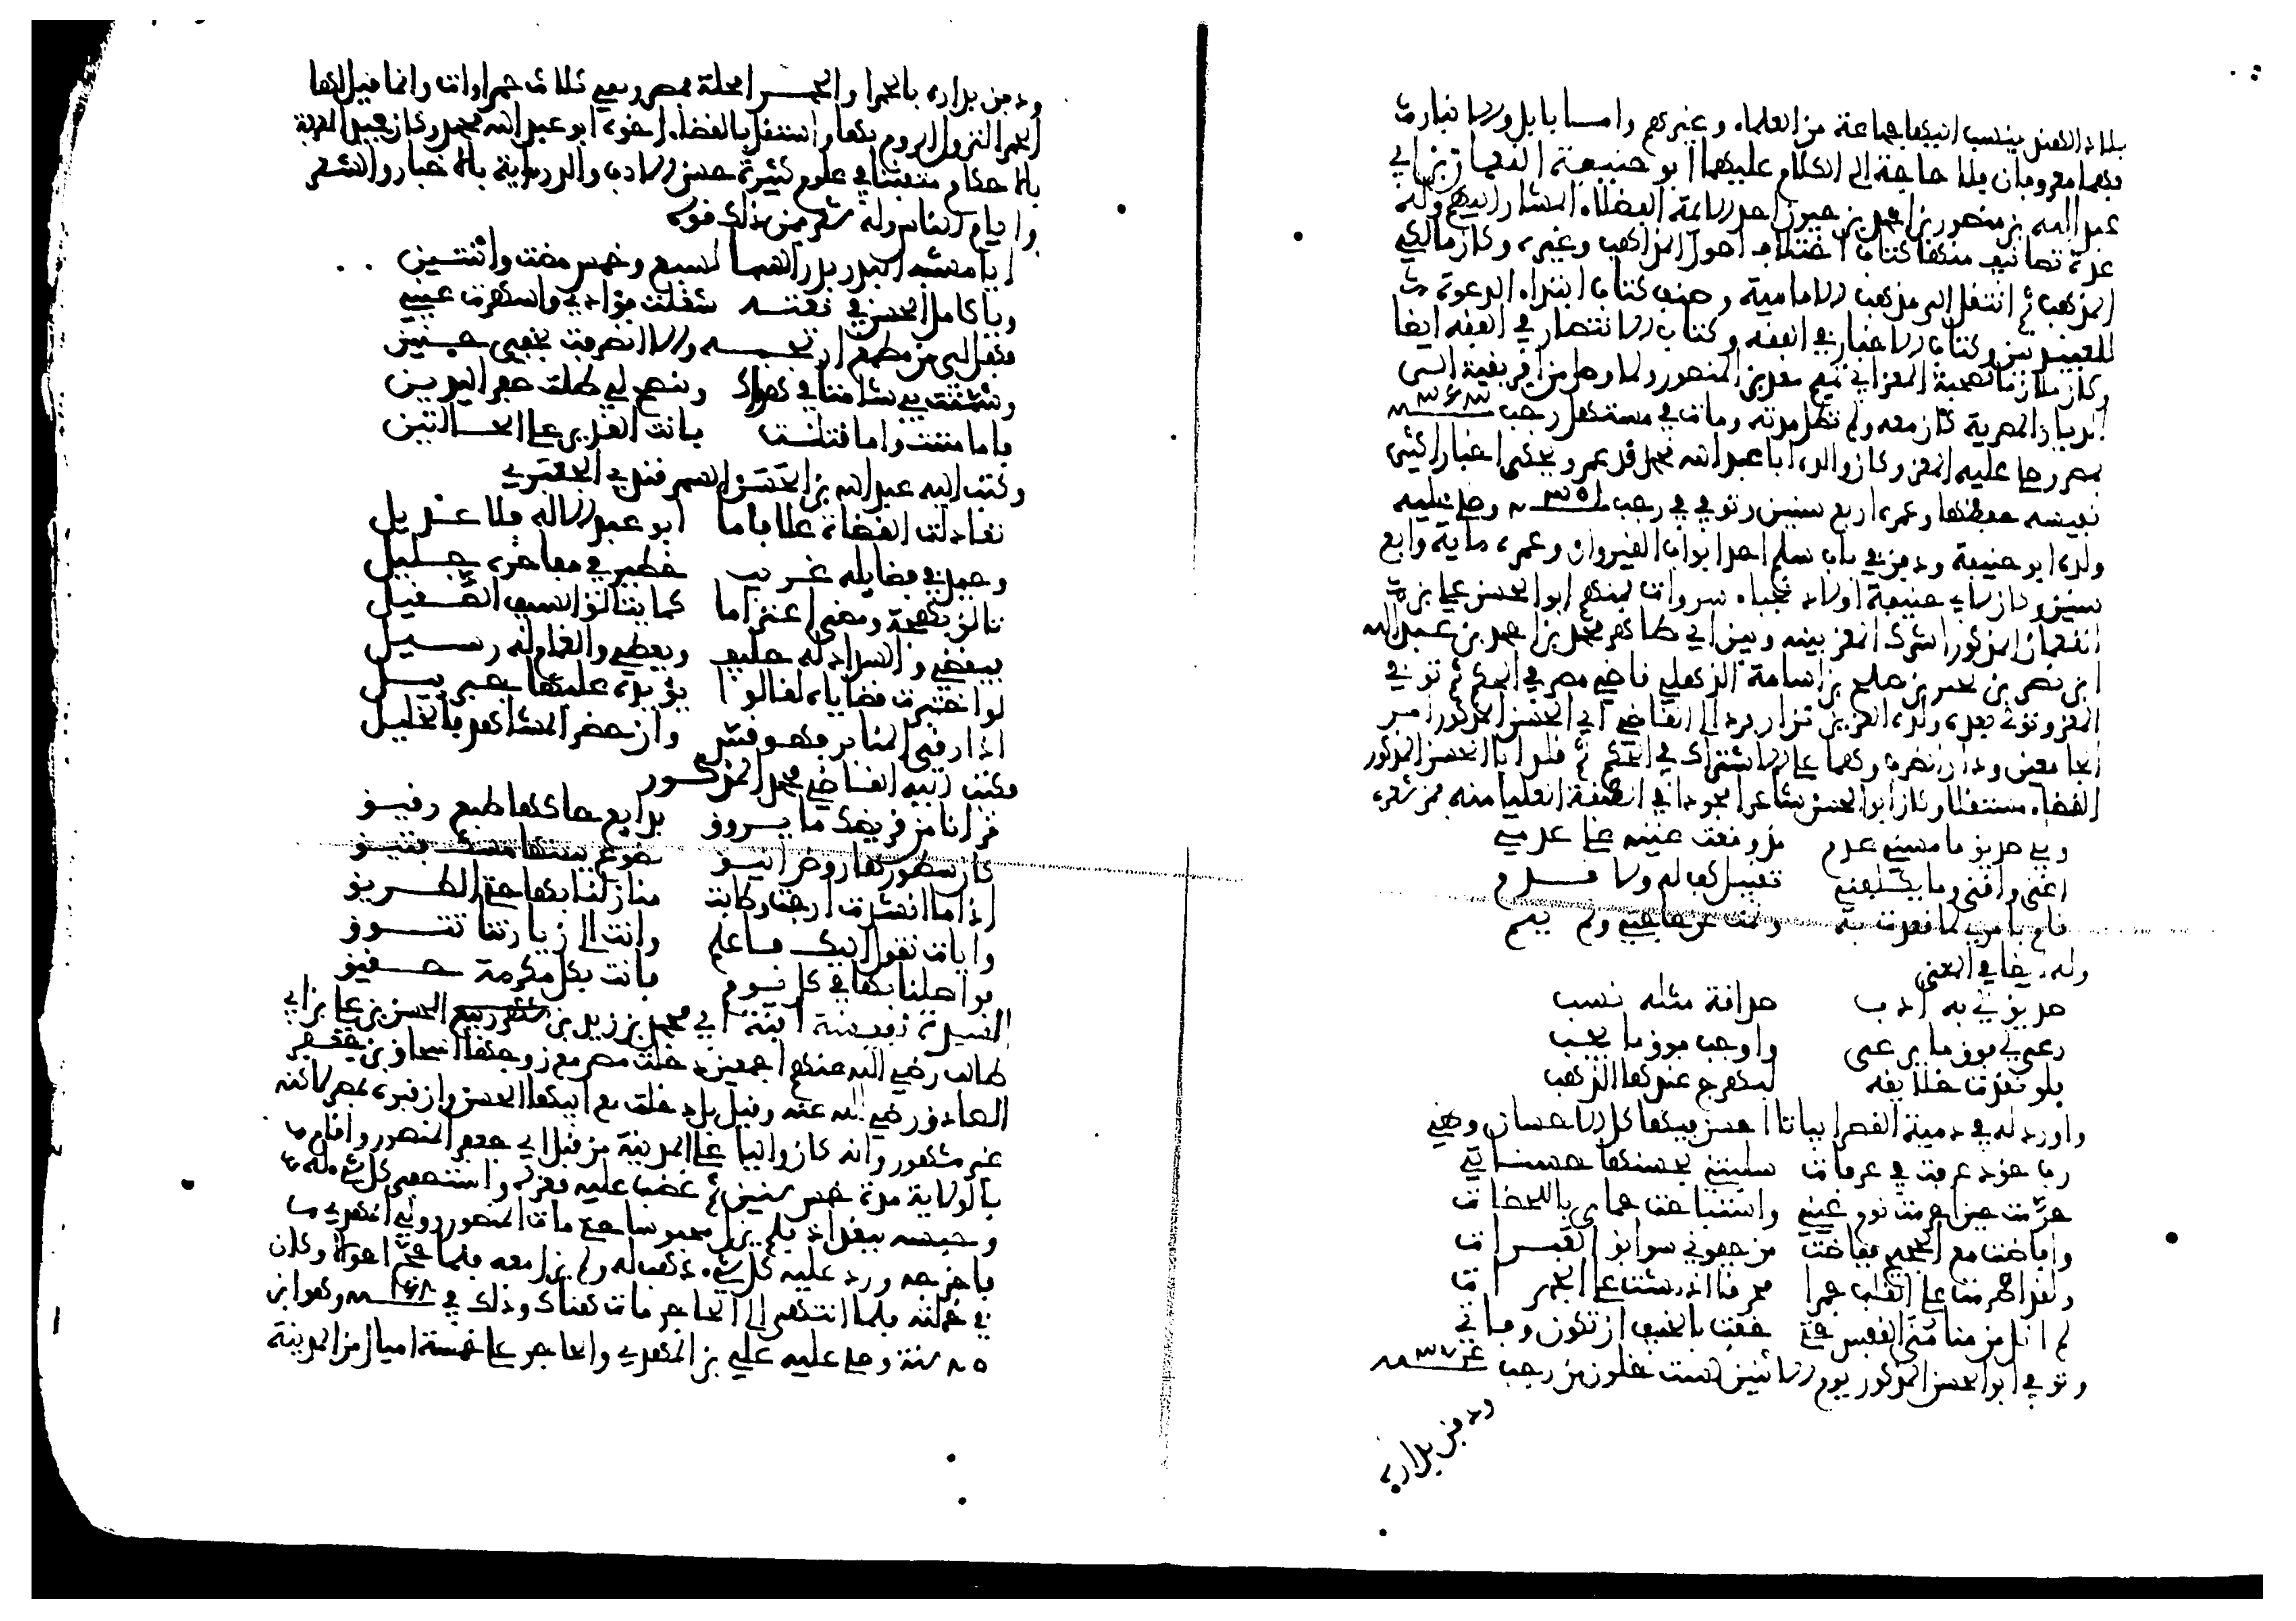 بلاد الهند ينسب اليها جماعة من العلماء وغيرهم واما بابل والانبار
فهما معروفان فلا حاجة الى الكلام عليهما ابو حنيفة النعمان بن ابي
عبد الله بن منصور بن احمد بن حيون احد الائمة الفضلاء المشار اليهم وله
عدة تصانيف منها كتاب اختلاف اصول المذاهب وغيره وكان مالكي
المذهب ثم انتقل الى مذهب الامامية وصنف كتاب ابتداء الدعوة
للعبيديين وكتاب الاخبار في الفقه وكتاب الانتصار في الفقه ايضا
وكان ملازما صحبة المعز ابي تميم معد بن المنصور ولما وصل من افريقية الى
الديار المصرية كان معه ولم تطل مدته ومات في مستهل رجب ٣٦٣
بمصر وصلى عليه المعز وكان والده ابا عبد الله محمد قد عمر ويحكي اخبارا كثيرة
نفيسة حفظها وعمره اربع سنين وتوفي في رجب ٣٥١ وصلى عليه
ولده ابو حنيفة ودفن في باب سلم احد ابواب القيروان وعمره ماية واربع
سنين وكان لابي حنيفة اولاد نجباء سروات فمنهم ابو الحسن علي بن
النعمان المذكور اشرك المعز بينه وبين ابي طاهر محمد بن احمد بن عبد الله
ابن نصر بن بحير بن صالح بن اسامة الذهلي قاضي مصر في الحكم ثم توفي
المعز وتولى بعده ولده العزيز نزار فرد الى القاضي ابي الحسن المذكور امر
الجامعين ودار الضرب وهما على الاشتراك في الحكم ثم قلد ابا الحسن المذكور
القضاء مستقلا وكان ابو الحسن شاعرا مجودا في الطبقة العليا منه فمن شعره
ولي صديق ما مسني عدم مذ وقعت عينه على عدمي
اغنى واقنى وما يكلفني تقبيل كف له ولا قدم
قام بامري لما قعدت به ونمت عن حاجتي ولم ينم
وله ايضا في المعنى
صديق لي به ادب صداقة مثله نسب
رعى لي فوق ما يرعى واوجب فوق ما يجب
فلو نقدت خلايقه لبهرج عندها الذهب
واورد له في دمية القصر ابياتا احسن فيها كل الاحسان وهي
رب خود عرفت في عرفات سلبتني بحسنها حسناتي
حرمت حين احرمت نوم عيني واستباحت حماي باللحظات
وافاضت مع الحجيج ففاضت من جفوني سوابق العبرات
ولقد اضرمت على القلب جمرا محرقا اذ مشت على الجمرات
لم انل من منى منى النفس حتى خفت بالخيف ان تكون وفاتي
وتوفي ابو الحسن المذكور يوم الاثنين لست خلون من رجب ٣٧٤
ودفن بداره
ودفن بداره بالحمراء والحمراء محلة بمصر وهي ثلاث حمراوات وانما قيل لها
الحمراء لنزول الروم بها واستقل بالقضاء اخوه ابو عبد الله محمد وكان جيد المعرفة
بالاحكام متفننا في علوم كثيرة حسن الادب والدراية بالاخبار والشعر
وايام الناس وله شعر فمن ذلك قوله
ايا مشبه البدر بدر السما لسبع وخمس مضت واثنتين
ويا كامل الحسن في نعته شغلت فؤادي واسهرت عيني
فهل لي من مطمع ارتجيه والا انصرفت بخفي حنين
ويشمت بي شامتا في هواك ويفصح لي ظلت صفر اليدين
فاما مننت واما قتلت فانت القدير على الحالتين
وكتب اليه عبد الله بن الحسن السمرقندي الجعفري
تعادلت القضاة علا فاما ابو عبد الاله فلا عديل
وحيد في فضايله غريب خطير في مفاخره جليل
تالق بهجة ومضى اعتزاما كما يتالق السيف الصقيل
فيقضي والسداد له حليف ويعطي والغمام له رسيل
لو اختبرت قضاياه لقالوا يؤيده عليها جبرييل
اذا رقي المنابر فهو قس وان حضر المشاهد فالخليل
فكتب اليه القاضي محمد المذكور
قرانا من قريضك ما يروق بدايع حاكها طبع رقيق
كان سطورها روض انيق تضوع بينها مسك فتيق
اذا ما انشدت ارجت وطابت منازلنا بها حتى الطريق
وانا تايقون اليك فاعلم وانت الى زيارتنا تتوق
فواصلنا بها في كل يوم فانت بكل مكرمة حقيق
السيدة نفيسة ابنة ابي محمد بن زيد بن الحسن بن علي بن ابي
طالب رضي الله عنهم اجمعين دخلت مصر مع زوجها اسحاق بن جعفر
الصادق رضي الله عنه وقيل بل دخلت مع ابيها الحسن وان قبره بمصر لاكنه
غير مشهور وانه كان واليا على المدينة من قبل ابي جعفر المنصور واقام
بالولاية مدة خمس سنين ثم غضب عليه فعزله واستصفى كل شيء له
وحبسه ببغداد فلم يزل محبوسا حتى مات المنصور وولي المهدي
فاخرجه ورد عليه كل شيء ذهب له ولم يزل معه فلما حج المهدي وكان
في جملته فلما انتهى الى الحاجر مات هناك وذلك في ١٦٨ وهو ابن
٨٥ سنة وصلى عليه علي بن المهدي والحاجر على خمسة اميال من المدينة